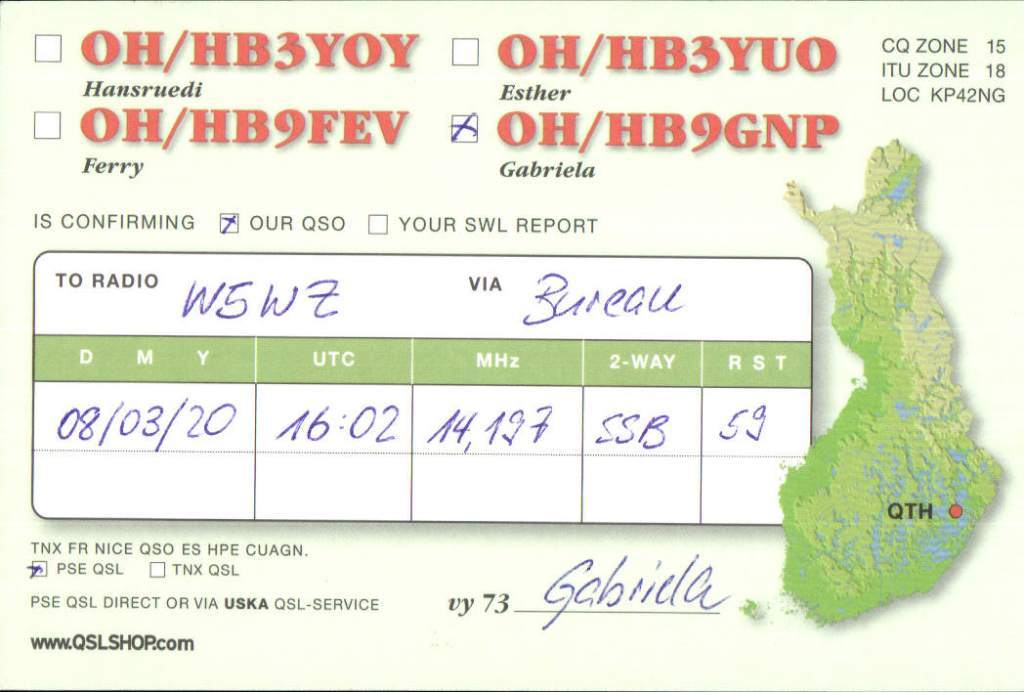 OH/HB3YOY OH/HB3YUO
Hansruedi Esther
OH/HB9FEV OH/HB9GNP
Ferry Gabriela
CQ ZONE 15
ITU ZONE 18
LOC KP42NG
IS CONFIRMING OUR QSO YOUR SWL REPORT
TO RADIO W5WZ VIA Bureau
D M Y UTC MHz 2-WAY R S T
08/03/20 16:02 14,197 SSB 59
QTH
TNX FR NICE QSO ES HPE CUAGN.
PSE QSL TNX QSL
PSE QSL DIRECT OR VIA USKA QSL-SERVICE
vy 73 Gabriela
www.QSLSHOP.com